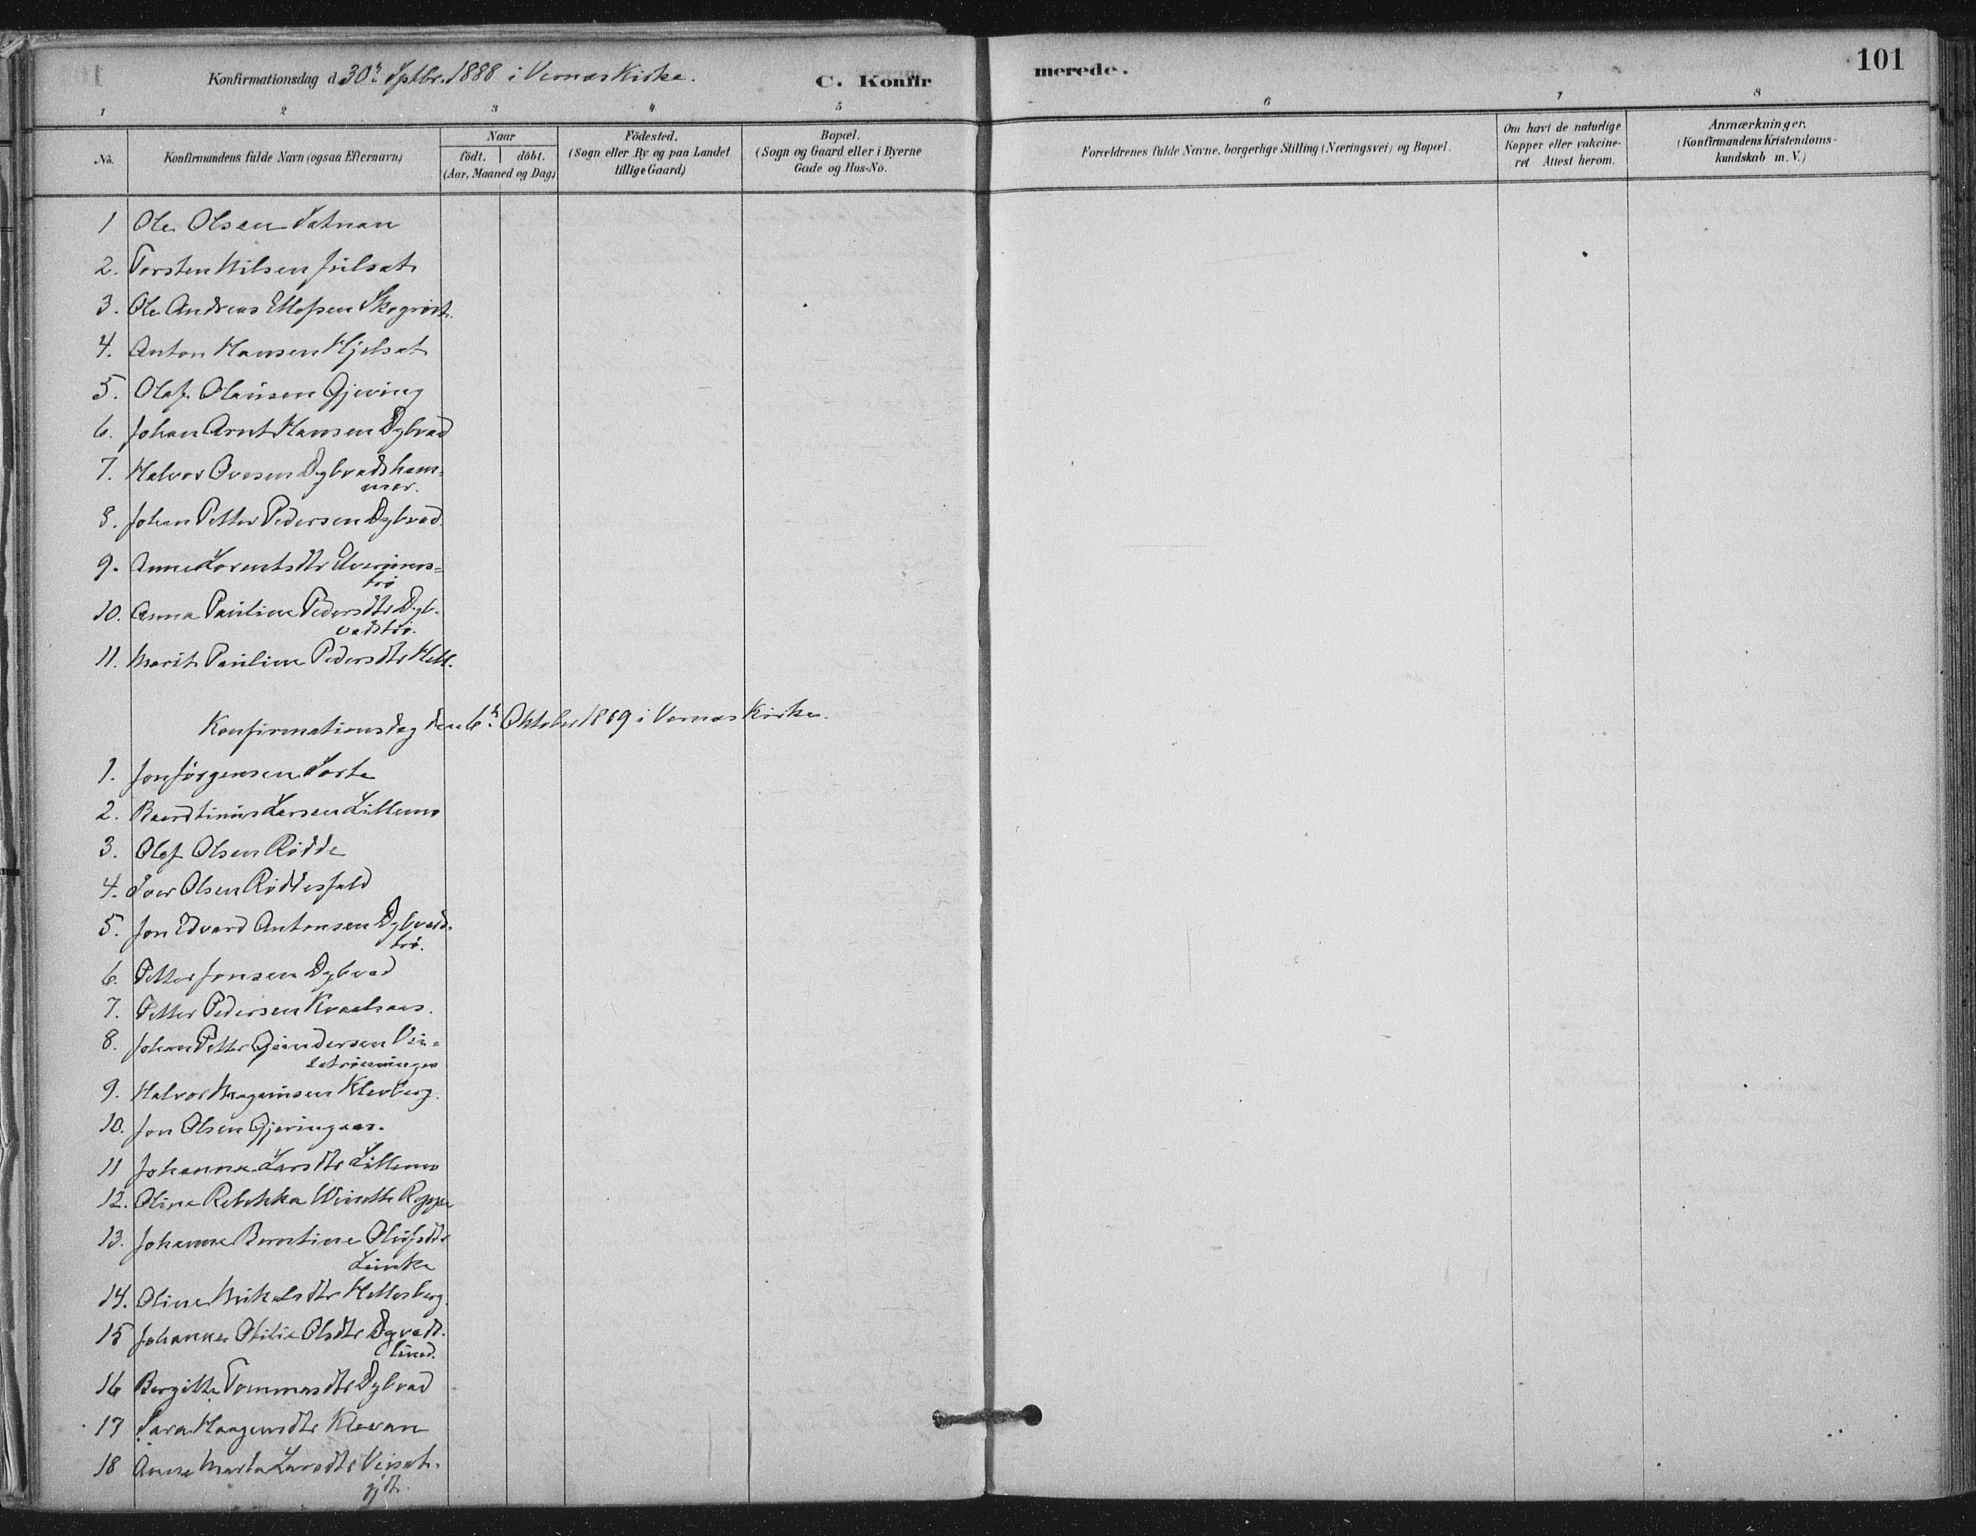 101
Konfirmationsdag d. 30te Septbr. 1888 i Vernes Kirke.
C. Konfirmerede.
1 2 3 4 5 6 7 8
No.
Konfirmandens fulde Navn (ogsaa Efternavn)
Naar
födt. | döbt.
(Aar, Maaned og Dag)
Födested.
(Sogn eller By og paa Landet
tillige Gaard)
Bopæl.
(Sogn og Gaard eller i Byerne
Gade og Hus-No.
Forældrenes fulde Navne, borgerlige Stilling (Næringsvei) og Bopæl.
Om havt de naturlige
Kopper eller vakcine-
ret Attest herom.
Anmærkninger.
(Konfirmandens Kristendoms-
kundskab m. V.)
1 Ole Olsen
2. Torsten Nilsen
3. Ole Andreas Ellefsen
4. Anton Hansen Hjelsat
5. Olaf Olausen Gjeving
6. Johan Arnt Hansen Dybvad
7. Halvor Ovesen Dybvadsham=
mer.
8. Johan Petter Pedersen Dybvad.
9. Anne Lorentsdtr
10. Anna Pauline Pedersdtr Dyb-
vadstrø.
11. Marit Pauline Pedersdtr Hell.
Konfirmationsdag den 6te Oktober 1889 i Vernes Kirke.
1. Jon Jörgensen
2. Larsen Lillemo
3. Olaf Olsen Rødde
4. Iver Olsen Røddesfald
5. Jon Edvard Antonsen Dybvads-
trø.
6. Petter Jonsen Dybvad
7. Petter Pedersen Kvaalsaas.
8. Johan Petter Gundersen
9. Halvor Klevberg.
10. Jon Olsen Gjevingaas.
11 Johanna Larsdtr Lillemo
12. Oline Rebekka
13. Johanna Berntine Olufsdtr
14. Oline Mikalsdtr Hellesberg.
15 Olsdtr
16 Bergitte Tommasdtr Dybvad
17 Sara Haagensdtr Klevan
18 Anne Marta Larsdtr